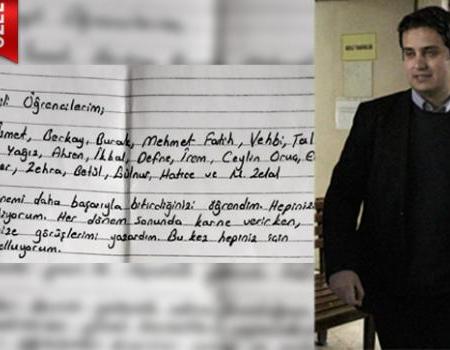 li Öğrencilerim;
smet, Berkay, Burak, Mehmet Fatih, Vehbi, Tal
Yağız, Ahsen, İkbal, Defne, İrem, Ceylin Oruç, E
er, Zehra, Betül, Gülnur, Hatice ve M. Zelal
nemi daha başarıyla bitirdiğinizi öğrendim. Hepiniz
iyorum. Her dönem sonunda karne verirken,
ize görüşlerimi yazardım. Bu kez hepiniz için
olluyorum.